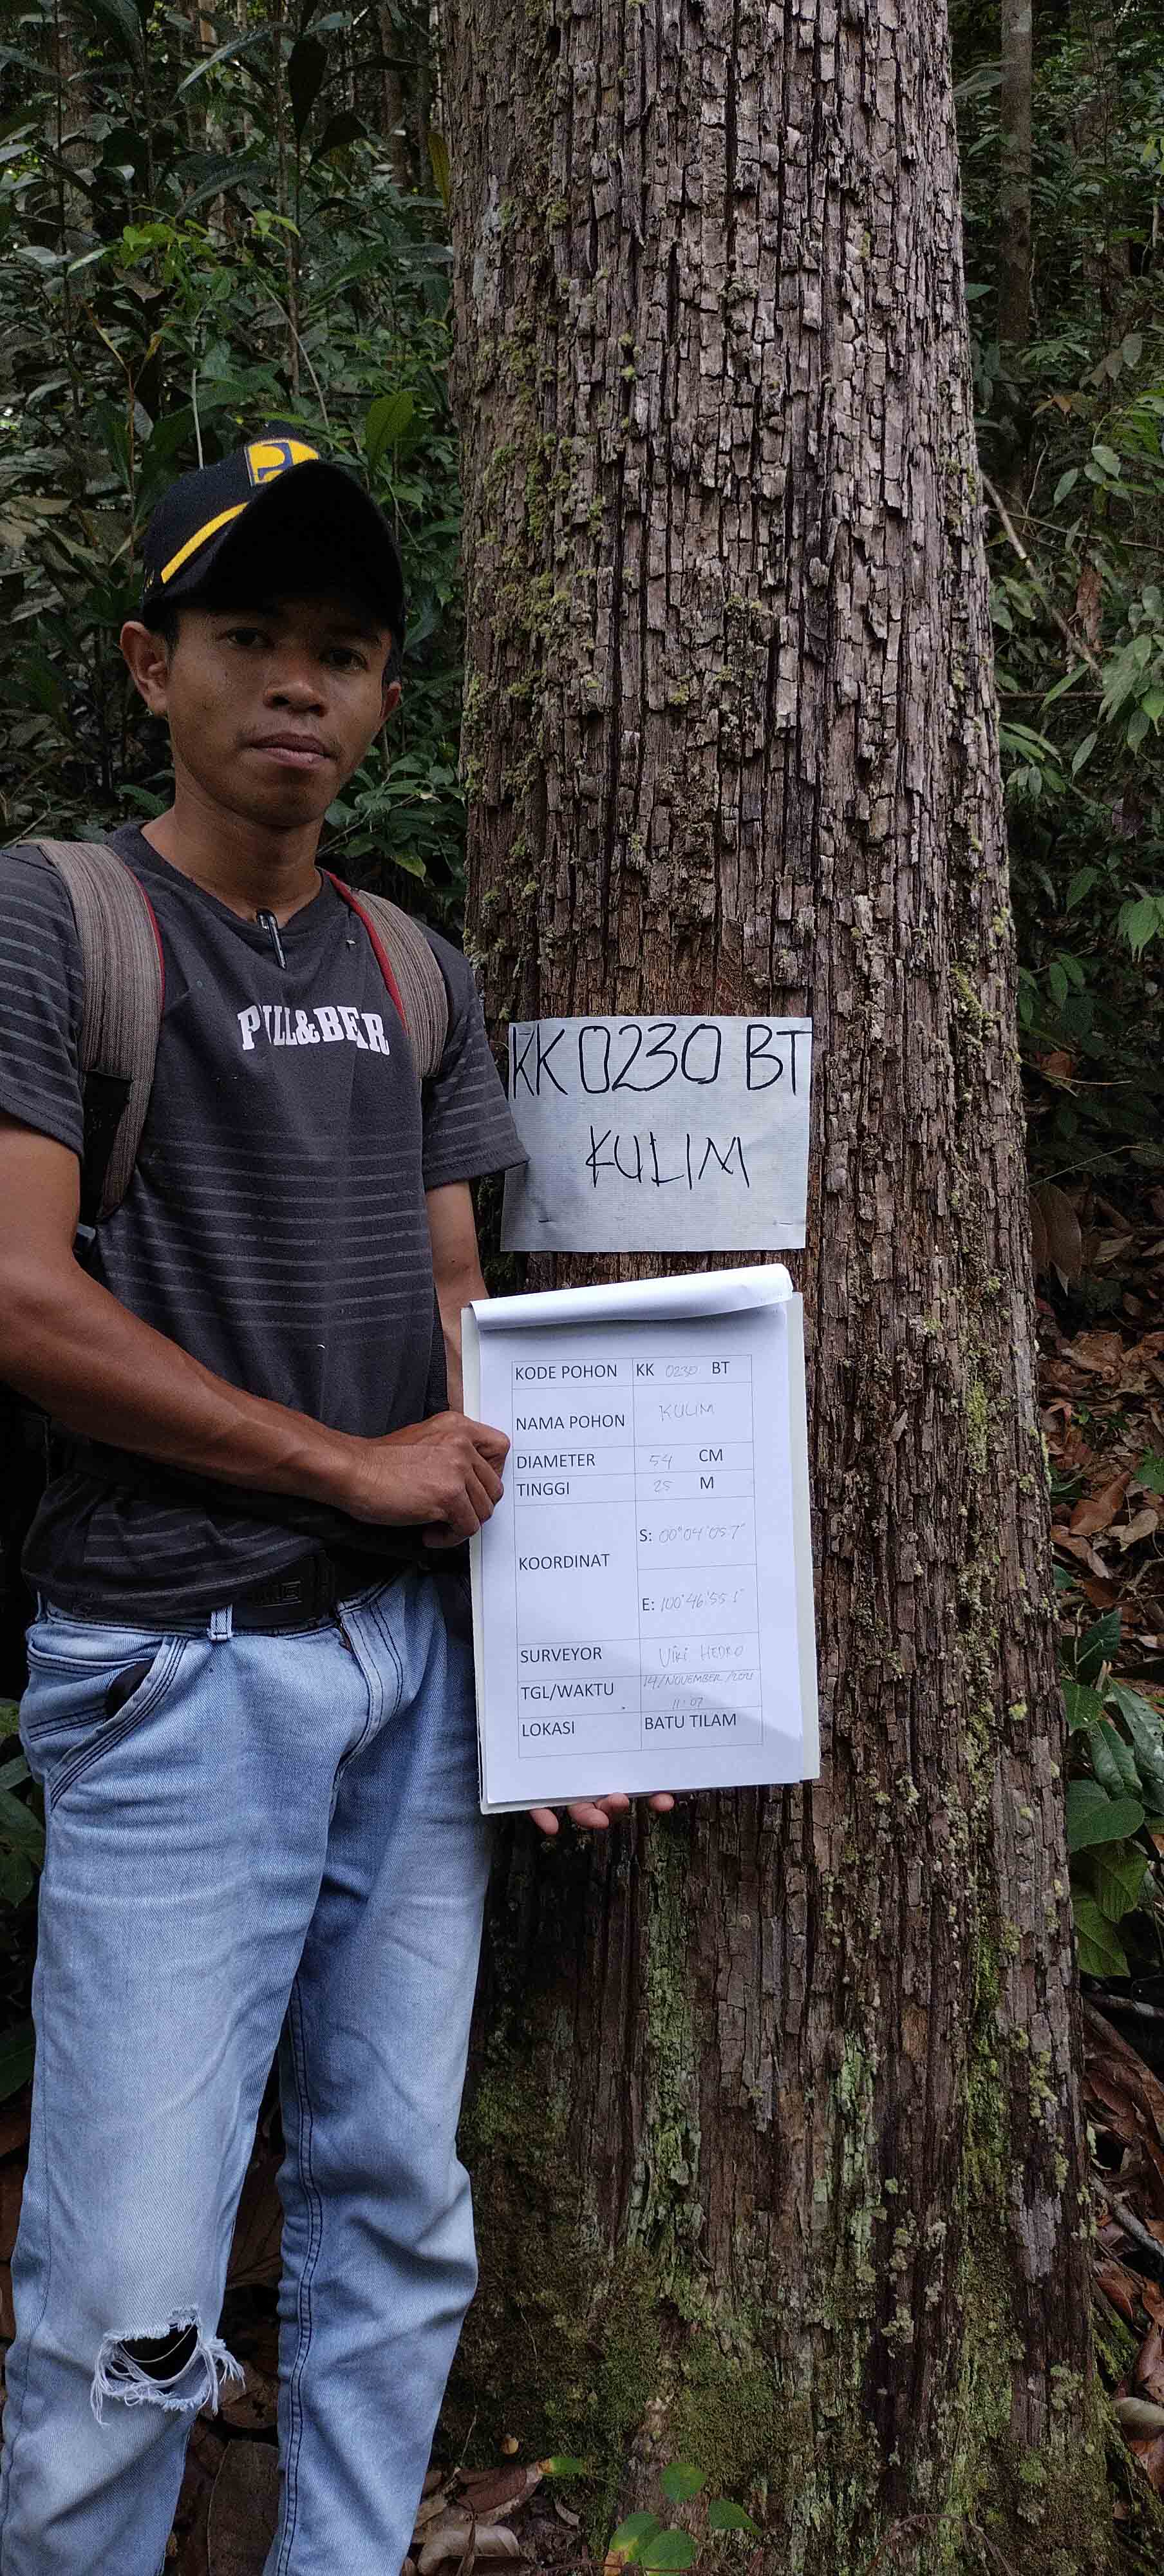 PULL&BER
KK 0230 BT
KULIM
KODE POHON KK 0230 BT
NAMA POHON KULIM
DIAMETER 54 CM
TINGGI 25 M
KOORDINAT
S: 00°04'05.7"
E: 100°46'55.1"
SURVEYOR VIKI HEDRO
TGL/WAKTU 14/NOVEMBER/2021
11:07
LOKASI BATU TILAM